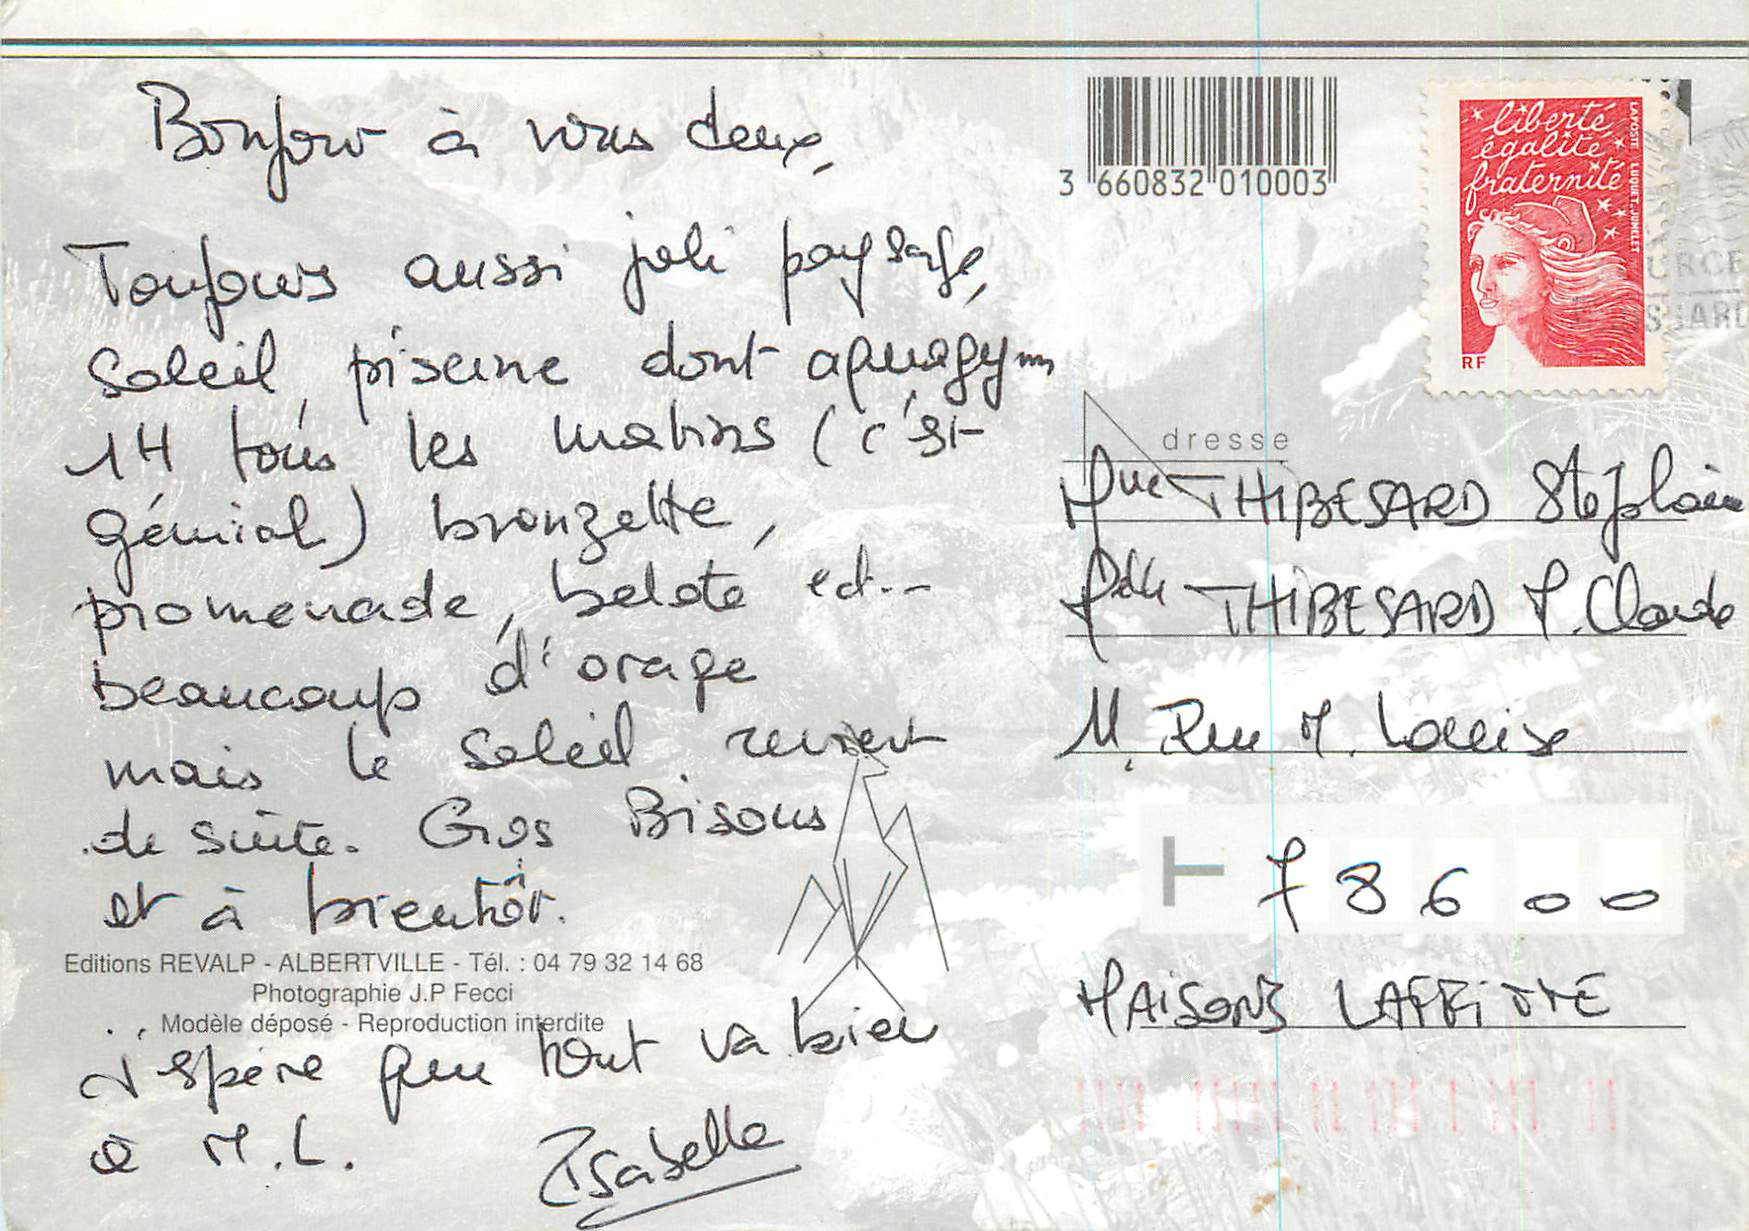 Bonjour à vous deux,
Toujours aussi joli paysage,
soleil, piscine dont aquagym
1H tous les matins (c'est
génial) bronzette,
promenade, belote ect..
beaucoup d'orage
mais le soleil revient
de suite. Gros Bisous
et à bientôt.
Editions REVALP - ALBERTVILLE - Tél. : 04 79 32 14 68
Photographie J.P Fecci
Modèle déposé - Reproduction interdite
j'espère que tout va bien
à M.L.
Isabelle
3 660832 010003
liberté
égalité
fraternité
LA POSTE LUQUET. JUMELET
RF
dresse
THIBESARD
THIBESARD J. Claude
11, Rue M. Louise
78600
MAISONS LAFFITTE